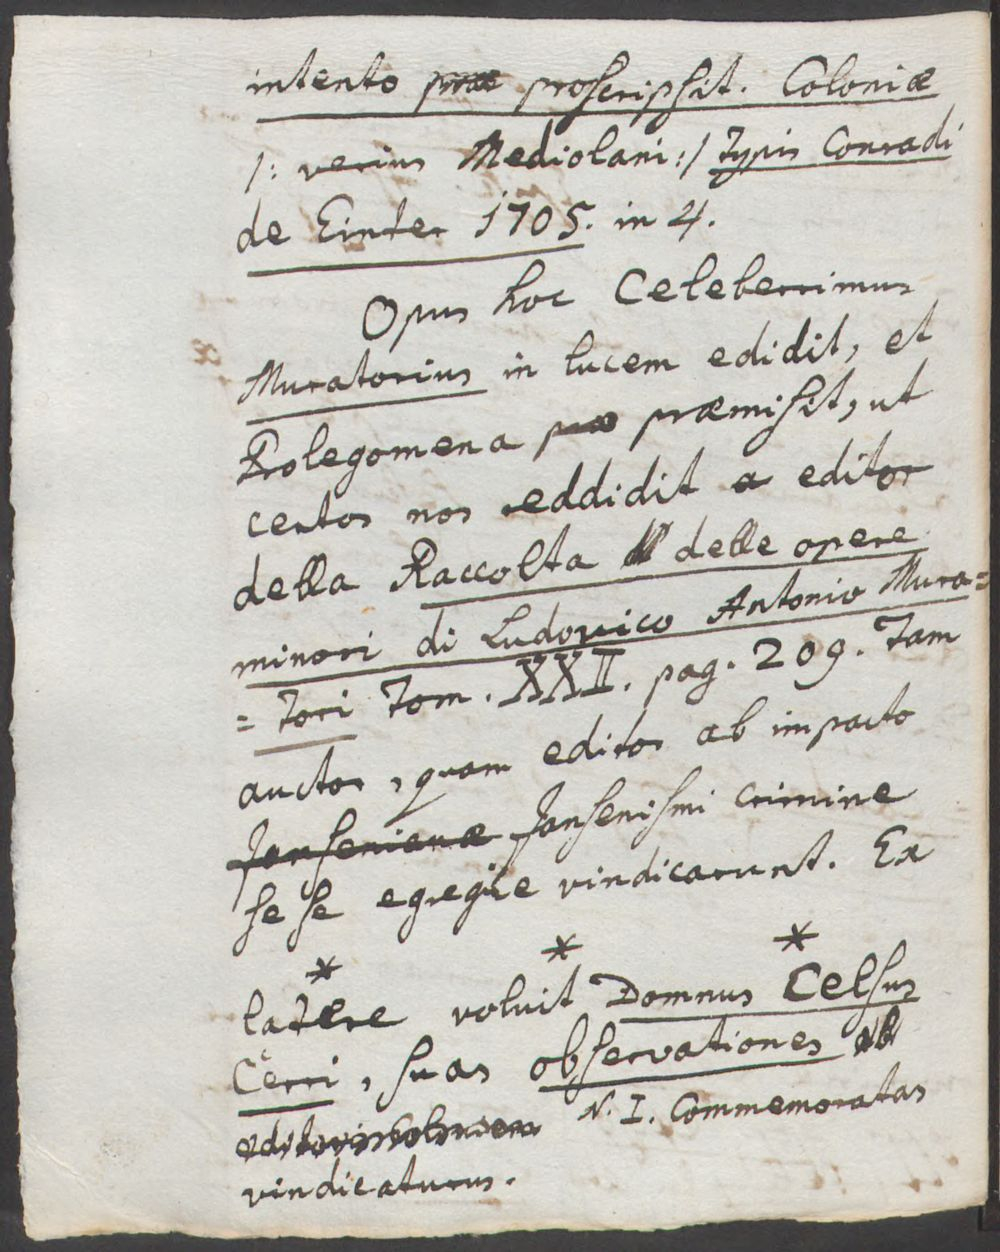 intento præ proscripsit. Coloniæ
/: verius Mediolani :/ typis Conradi
de Einter 1705. in 4.
Opus hoc Celeberrimus
Muratorius in lucem edidit, et
Prolegomena præ præmisit, ut
certos nos reddidit a editor
della Raccolta delle opere
minori di Ludovico Antonio Mura=
=tori Tom. XXII. pag. 209. Tam
auctor, quam editor ab impacto
Jansenianæ Jansenismi crimine
sese egregiie vindicarunt. Ex
* * *
latere voluit Domnus Celsus
Cerri, suas observationes ab
N. I. Commemoratas
vindicaturus.